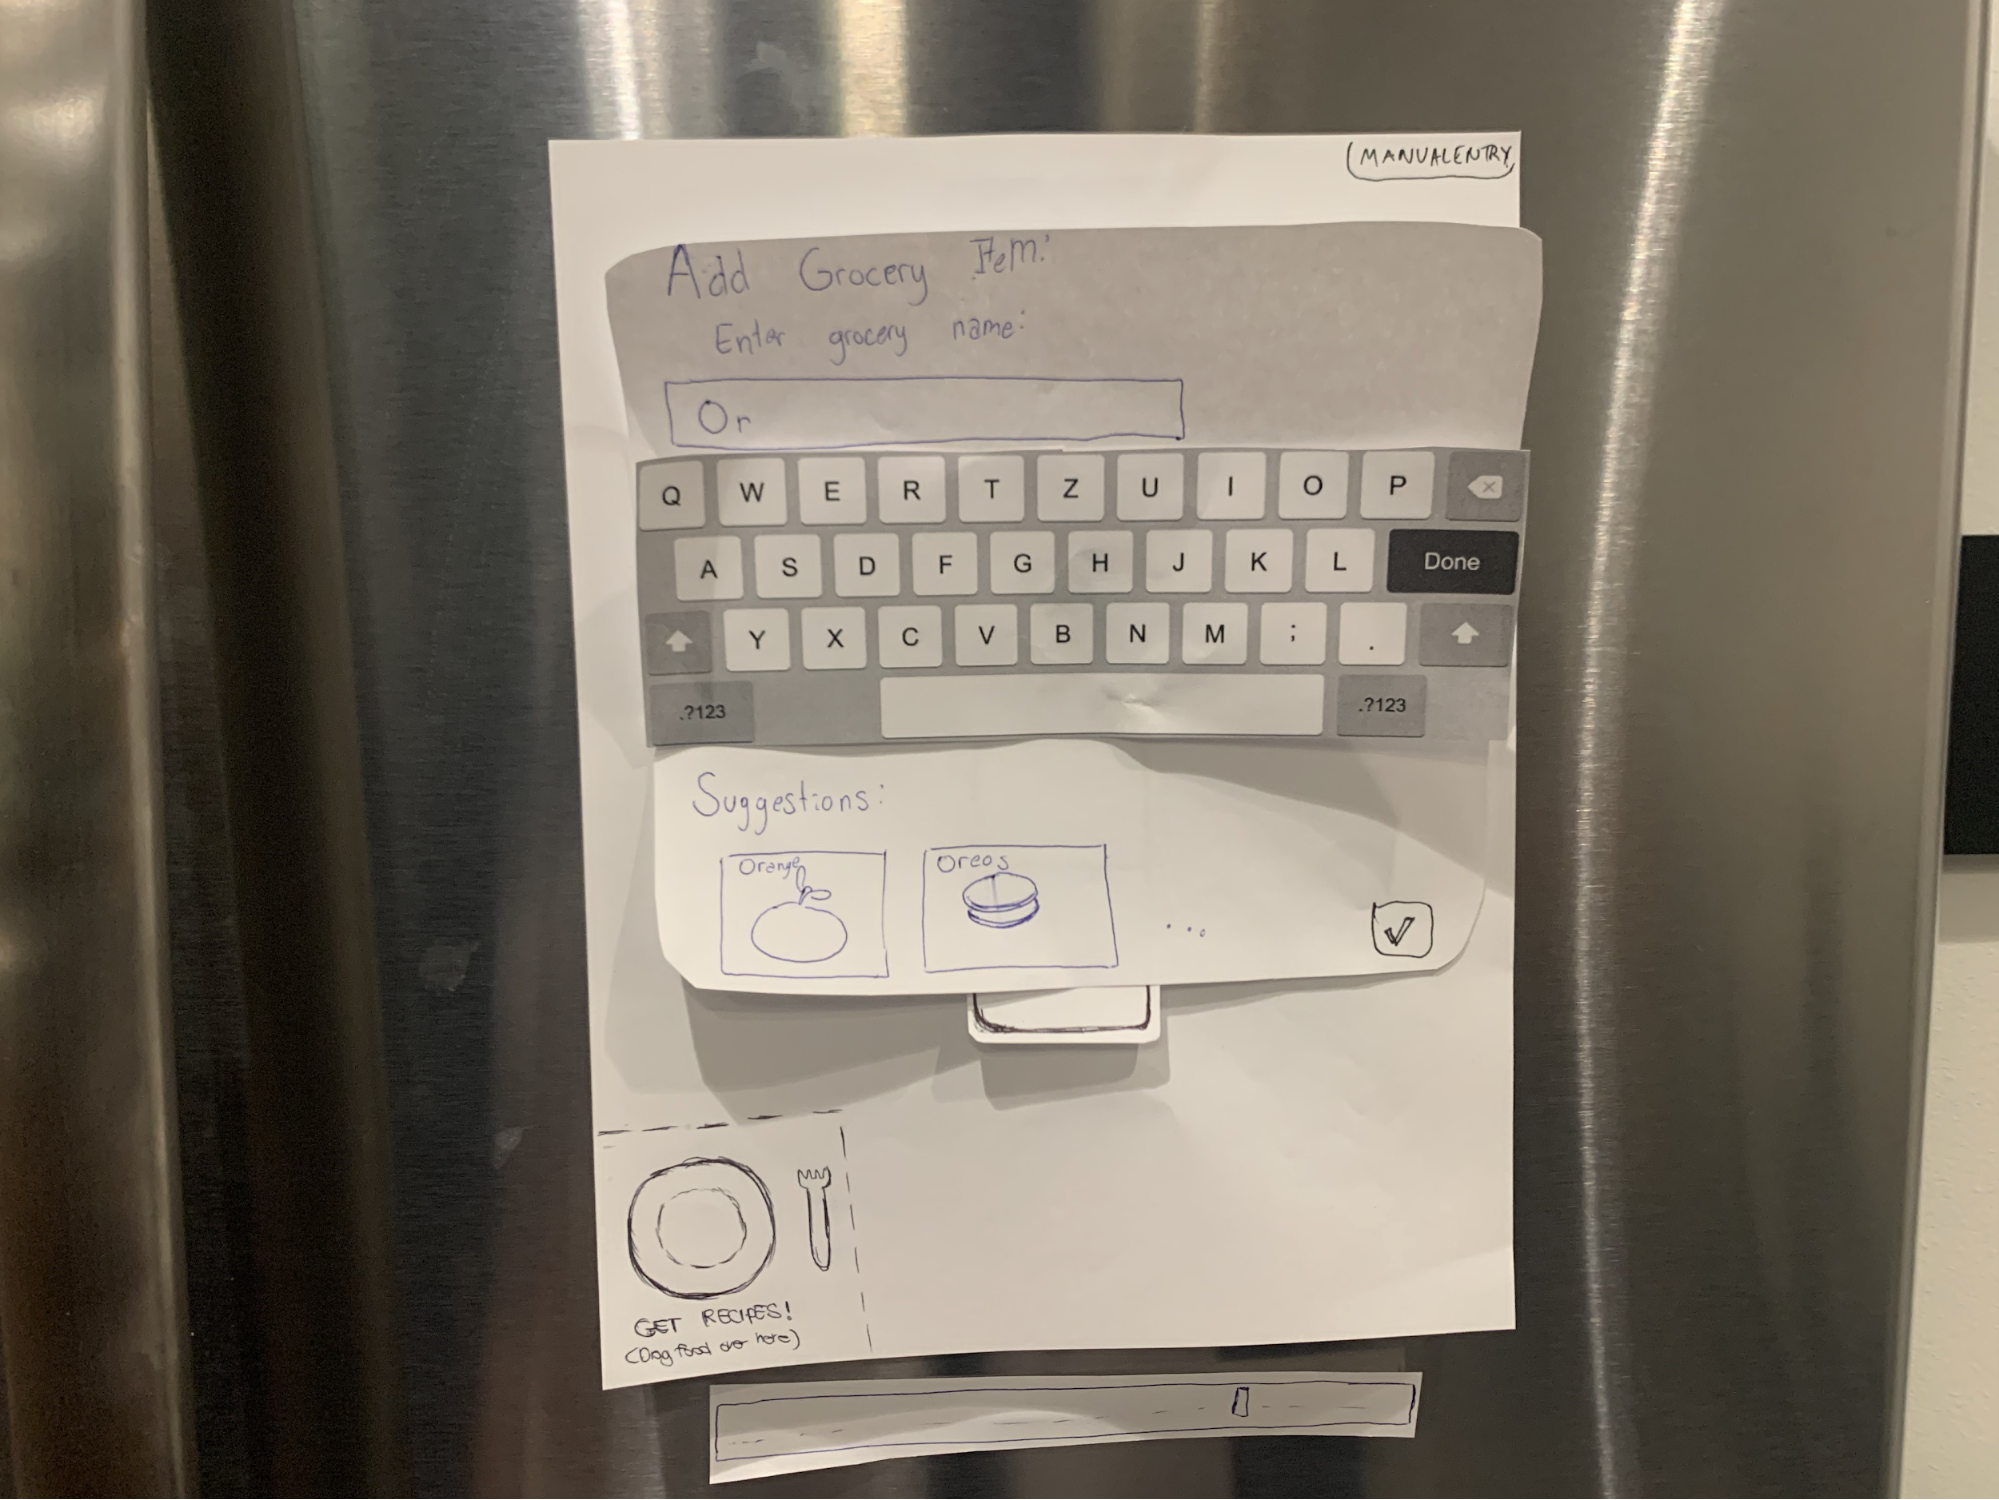 MANUAL ENTRY
Add Grocery Item:
Enter grocery name:
Or
Q W E R T Z U I O P
A S D F G H J K L Done
Y X C V B N M ; .
.?123 .?123
Suggestions:
Orange Oreos ...
GET RECIPES!
(Drag food over here)